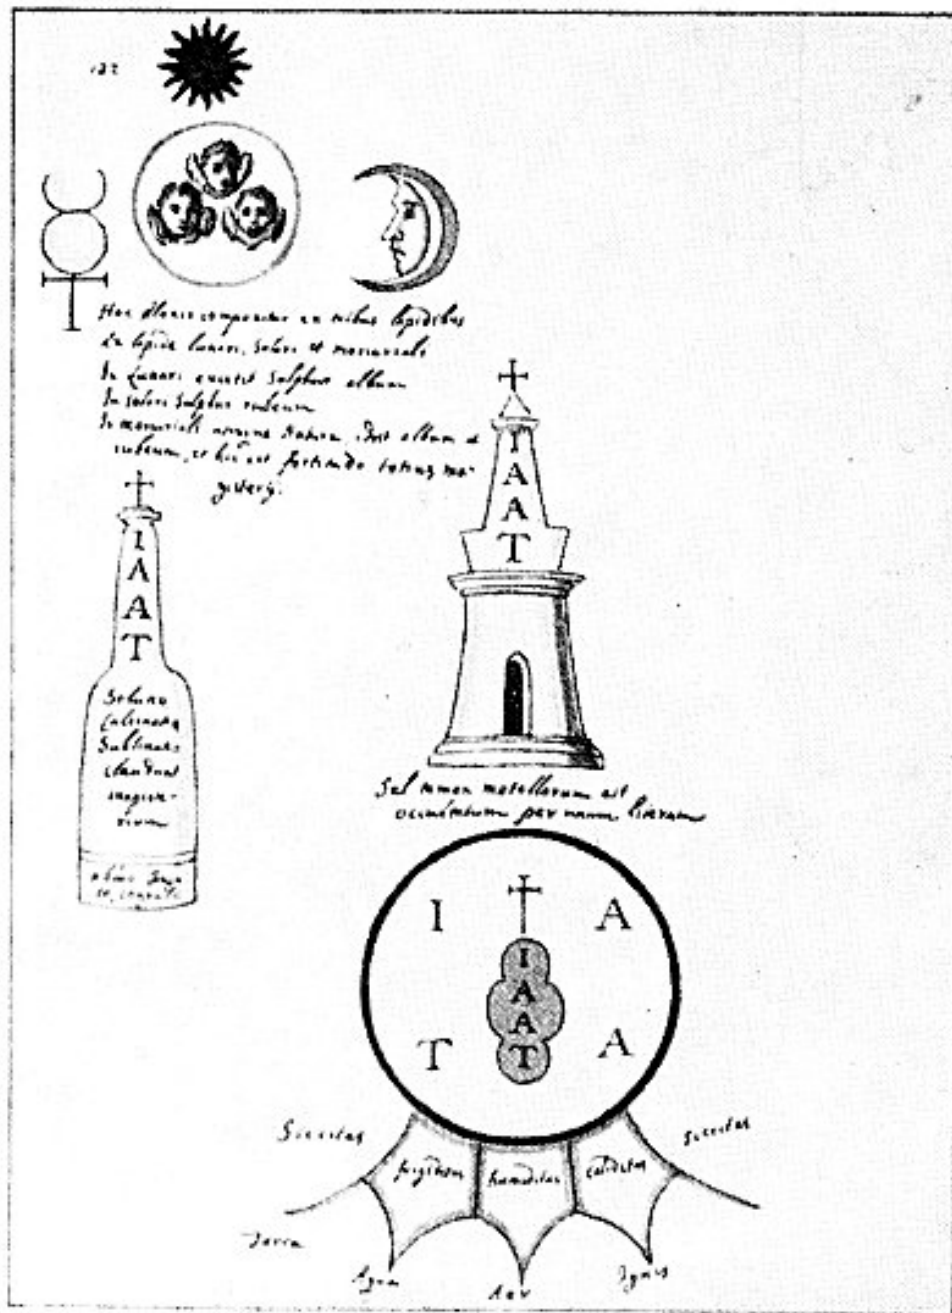 132
Hec componitur ex tribus lapidibus
Ex lapide lunari, solari et mercuriali
In Lunari existit Sulphur album
In solari Sulphur rubeum
In mercuriali Natura, album et
rubeum, et hic est fortitudo totius ma-
gisterij.
I
A
A
T
I
A
A
T
Solutio
Calcinatio
Sublimatio
claudunt
magiste-
rium
Sal tamen metallorum est
occultatum per unam literam
I A
I
A
A
T
T A
Siccitas siccitas
frigiditas humiditas caliditas
Terra
Aqua Aer Ignis